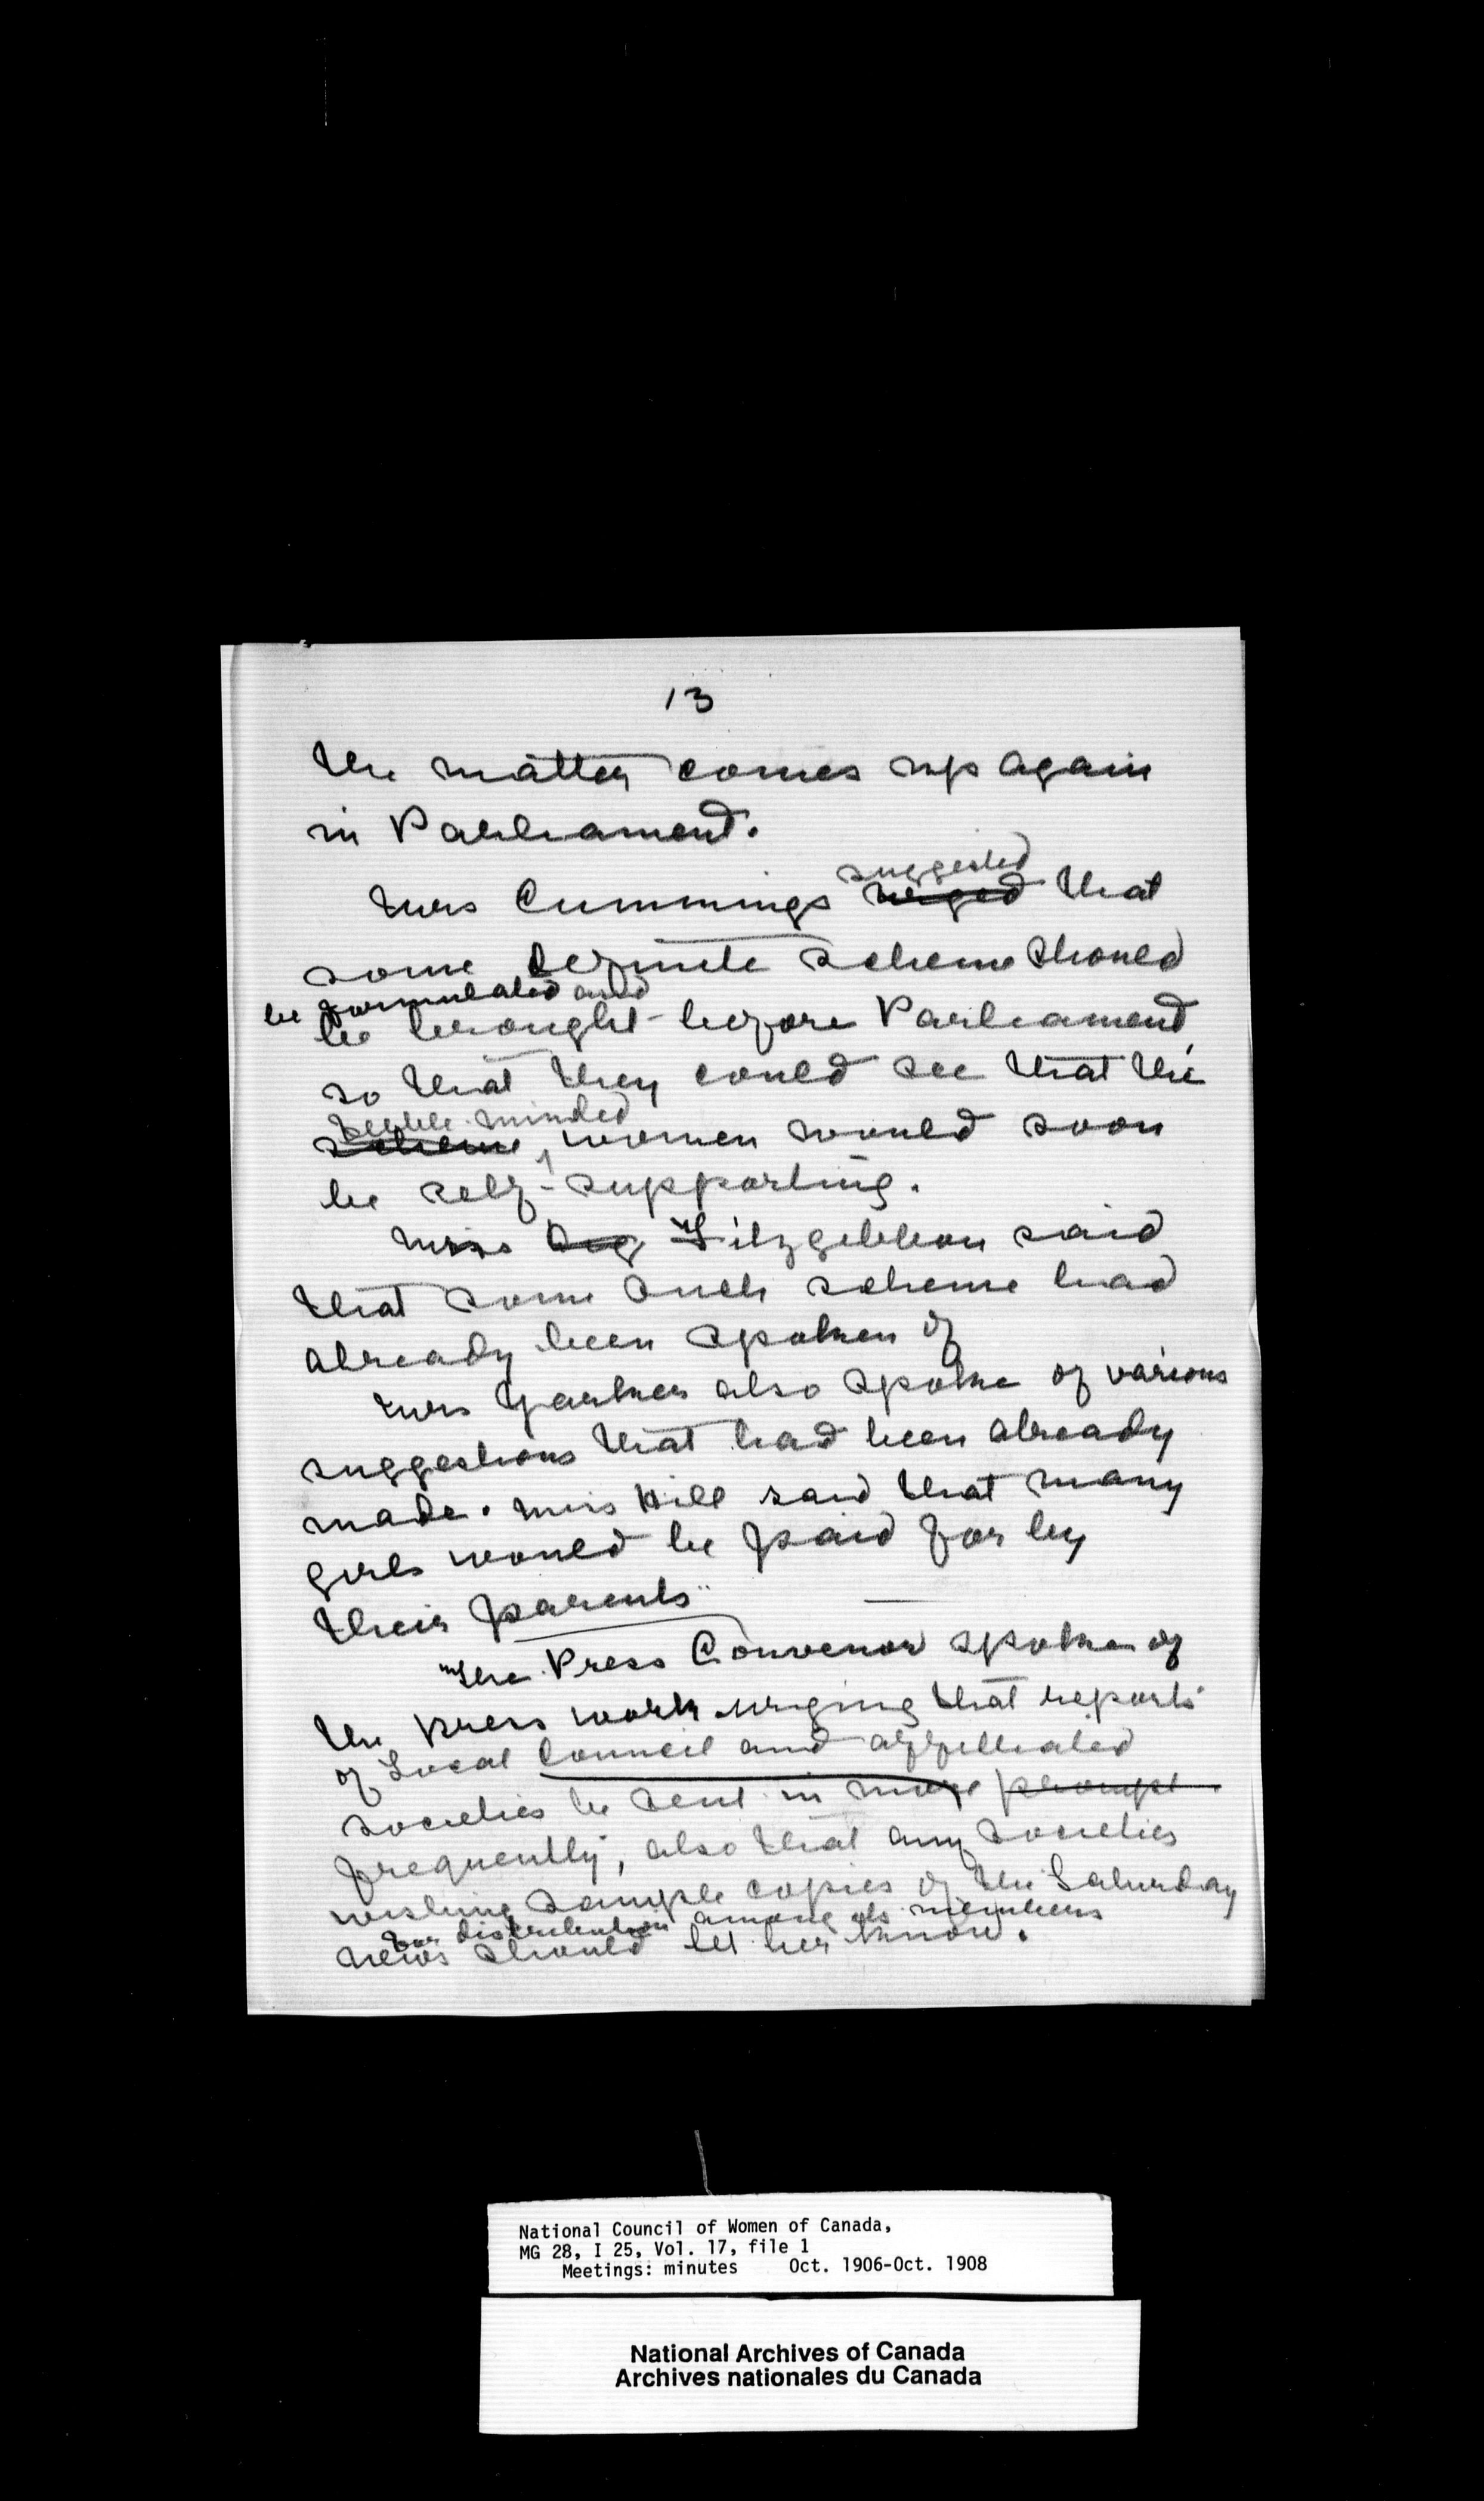 13
the matter comes up again
in Parliament.
Mrs Cummings suggested urged that
some definite scheme should
be formulated and
be brought before Parliament
so that they could see that the
feeble-minded
scheme, women would soon
be self-supporting.
Miss Fitzgibbon said
that some such scheme had
already been spoken of
Mrs Yarker also spoke of various
suggestions that had been already
made. Miss Hill said that many
girls would be paid for by
their parents
The Press Convenor spoke of
the press work urging that reports
of Local Council and affilliated
societies be sent in more prompt
frequently, also that any societies
wishing sample copies of the Saturday
for distribution among its members
news should let her know.
National Council of Women of Canada,
MG 28, I 25, Vol. 17, file 1
Meetings: minutes Oct. 1906-Oct. 1908
National Archives of Canada
Archives nationales du Canada